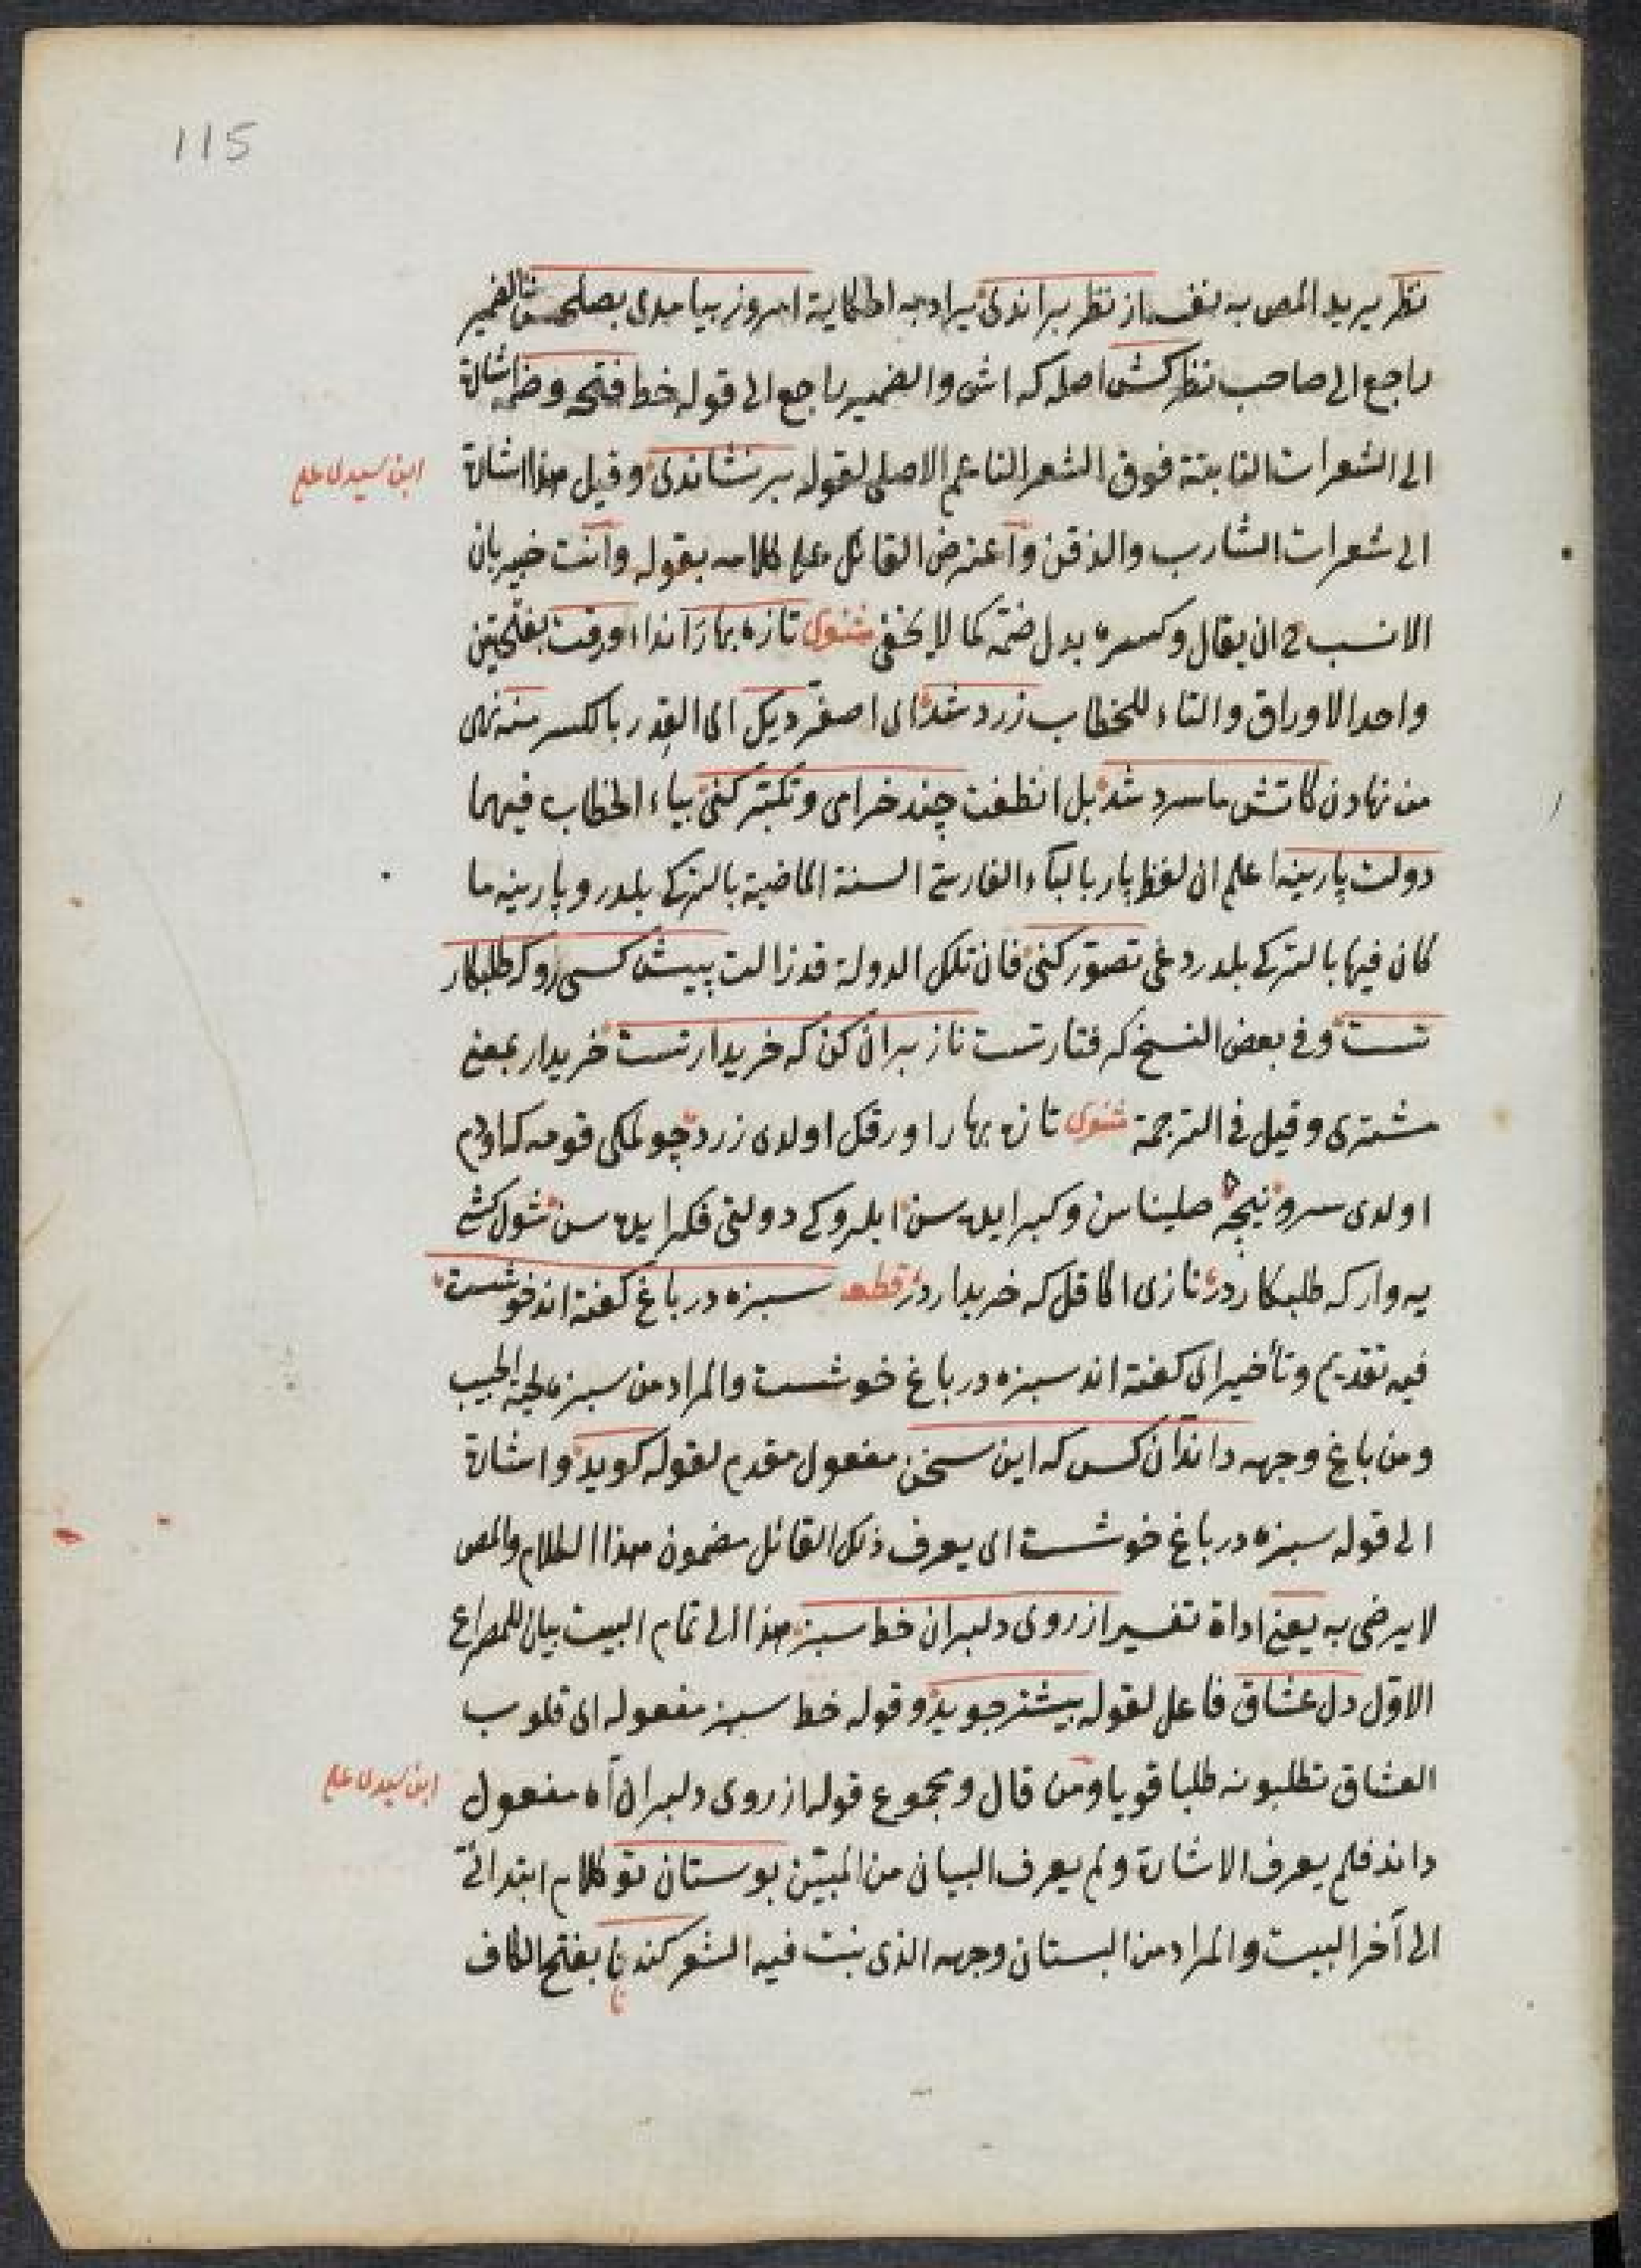 115
نظر يريد المص به نفسه از نظر براندى يراد به الحكاية امروز بيامدى بصلحش الضمير
راجع الى صاحب نظر كش اصله كه اش والضمير راجع الى قوله خط فتحه وضمه اشارة
الى الشعرات النابتة فوق الشعر الناعم الاصلى لقوله برنشاندى وقيل هذا اشارة
ابن سيدى على
الى شعرات الشارب والذقن واعترض القائل على كلامه بقوله وانت خبير بان
الانسب ح ان يقال وكسره بدل ضمه كما لا يخفى مثنوى تازه بهارا اندا ورقت بفتحتين
واحد الاوراق والتاء للخطاب زرد شد اى اصفر ديك اى القدر بالكسر منه نهى
من نهادن كاتش ما سرد شد بل انطفت چند خرامى وتكبر كنى بياء الخطاب فيهما
دولت پارينه اعلم ان لفظ پار بالباء الفارسى السنة الماضية بالتركى بلدر وپارينه ما
كان فيها بالتركى بلدردغى تصور كنى فان تلك الدولة قد زالت پيش كسى رو كه طلبكار
تست وفى بعض النسخ كه فتارتست ناز بران كن كه خريدار تست خريدار بمعنى
مشترى وقيل فى الترجمة مثنوى تازه بهارا ورقك اولدى زرد چولمكى قومه كه اودم
اولدى سرد نيجه صلیناسن وكبر ايله سن ايلروكى دولتى فكر ايله سن شول كشى
يه وار كه طلبكار در نازى اكا قل كه خريدار در قطعه سبزه در باغ كفته اند خوشست
فيه تقديم وتأخير اى كفته اند سبزه در باغ خوشست والمراد من سبزه لحية الحبيب
ومن باغ وجهه داند ان كس كه اين سخن مفعول مقدم لقوله كويد واشارة
الى قوله سبزه در باغ خوشست اى يعرف ذلك القائل مضمون هذا الكلام والمص
لا يرضى به يعنى اداة تفسير از روى دلبران خط سبز هذا الى تمام البيت بيان للمصراع
الاول دل عشاق فاعل لقوله بيشتر جويد وقوله خط سبز مفعوله اى قلوب
العشاق تطلبونه طلبا قويا ومن قال ومجموع قوله از روى دلبران آه مفعول
ابن سيدى على
داند فلم يعرف الاشارة ولم يعرف البيان من المبين بوستان تو كلام ابتدائى
الى آخر البيت والمراد من البستان وجهه الذى نبت فيه الشعر كندنا بفتح الكاف
نا